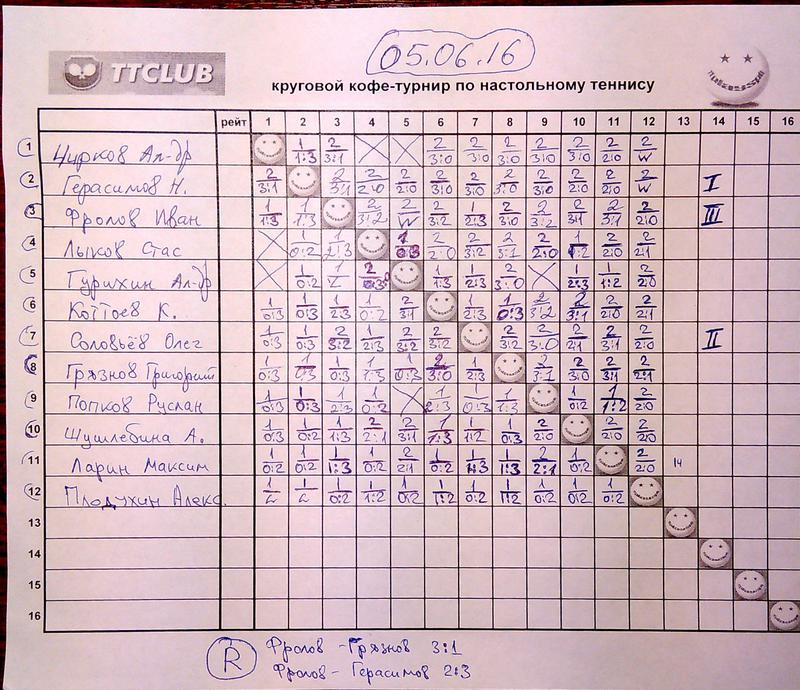 05.06.16
TTCLUB
круговой кофе-турнир по настольному теннису
рейт 1 2 3 4 5 6 7 8 9 10 11 12 13 14 15 16
1 Чирков Ал-др 1 1:3 2 3:1 2 3:0 2 3:0 2 3:0 2 3:0 2 3:0 2 2:0 2 W
2 Герасимов Н. 2 3:1 2 3:1 2 2:0 2 2:0 2 3:0 2 3:0 2 3:0 2 3:0 2 2:0 2 2:0 2 W I
3 Фролов Иван 1 1:3 1 1:3 2 3:2 2 W 2 3:2 1 2:3 2 3:0 2 3:2 2 3:1 2 3:1 2 2:0 III
4 Лыков Стас 1 0:2 1 2:3 2 2:0 2 3:2 2 3:1 2 2:0 1 1:2 2 2:0 2 2:1
5 Гурихин Ал-др 1 0:2 1 L 2 1 1:3 1 2:3 2 3:0 1 2:3 1 1:2 2 2:0
6 Коттоев К. 1 0:3 1 0:3 1 2:3 1 0:2 2 3:1 1 2:3 1 0:3 2 3:2 2 3:1 2 2:0 2 2:1
7 Соловьёв Олег 1 0:3 1 0:3 2 3:2 1 2:3 2 3:2 2 3:2 2 3:2 2 3:0 2 2:1 2 3:1 2 2:0 II
8 Грязнов Григорий 1 0:3 1 0:3 1 0:3 1 1:3 1 0:3 2 3:0 1 2:3 2 3:1 2 3:0 2 3:1 2 2:1
9 Попков Руслан 1 0:3 1 0:3 1 2:3 1 0:2 1 2:3 1 0:3 1 1:3 1 0:2 1 1:2 2 2:0
10 Шушлебина А. 1 0:3 1 0:2 1 1:3 2 2:1 2 3:1 1 1:3 1 1:2 1 0:3 2 2:0 2 2:0 2 2:0
11 Ларин Максим 1 0:2 1 0:2 1 1:3 1 0:2 2 2:1 1 0:2 1 1:3 1 1:3 2 2:1 1 0:2 2 2:0 14
12 Плодухин Алекс. 1 L 1 L 1 0:2 1 1:2 1 0:2 1 1:2 1 0:2 1 1:2 1 0:2 1 0:2 1 0:2
13
14
15
16
R Фролов - Грязнов 3:1
Фролов - Герасимов 2:3